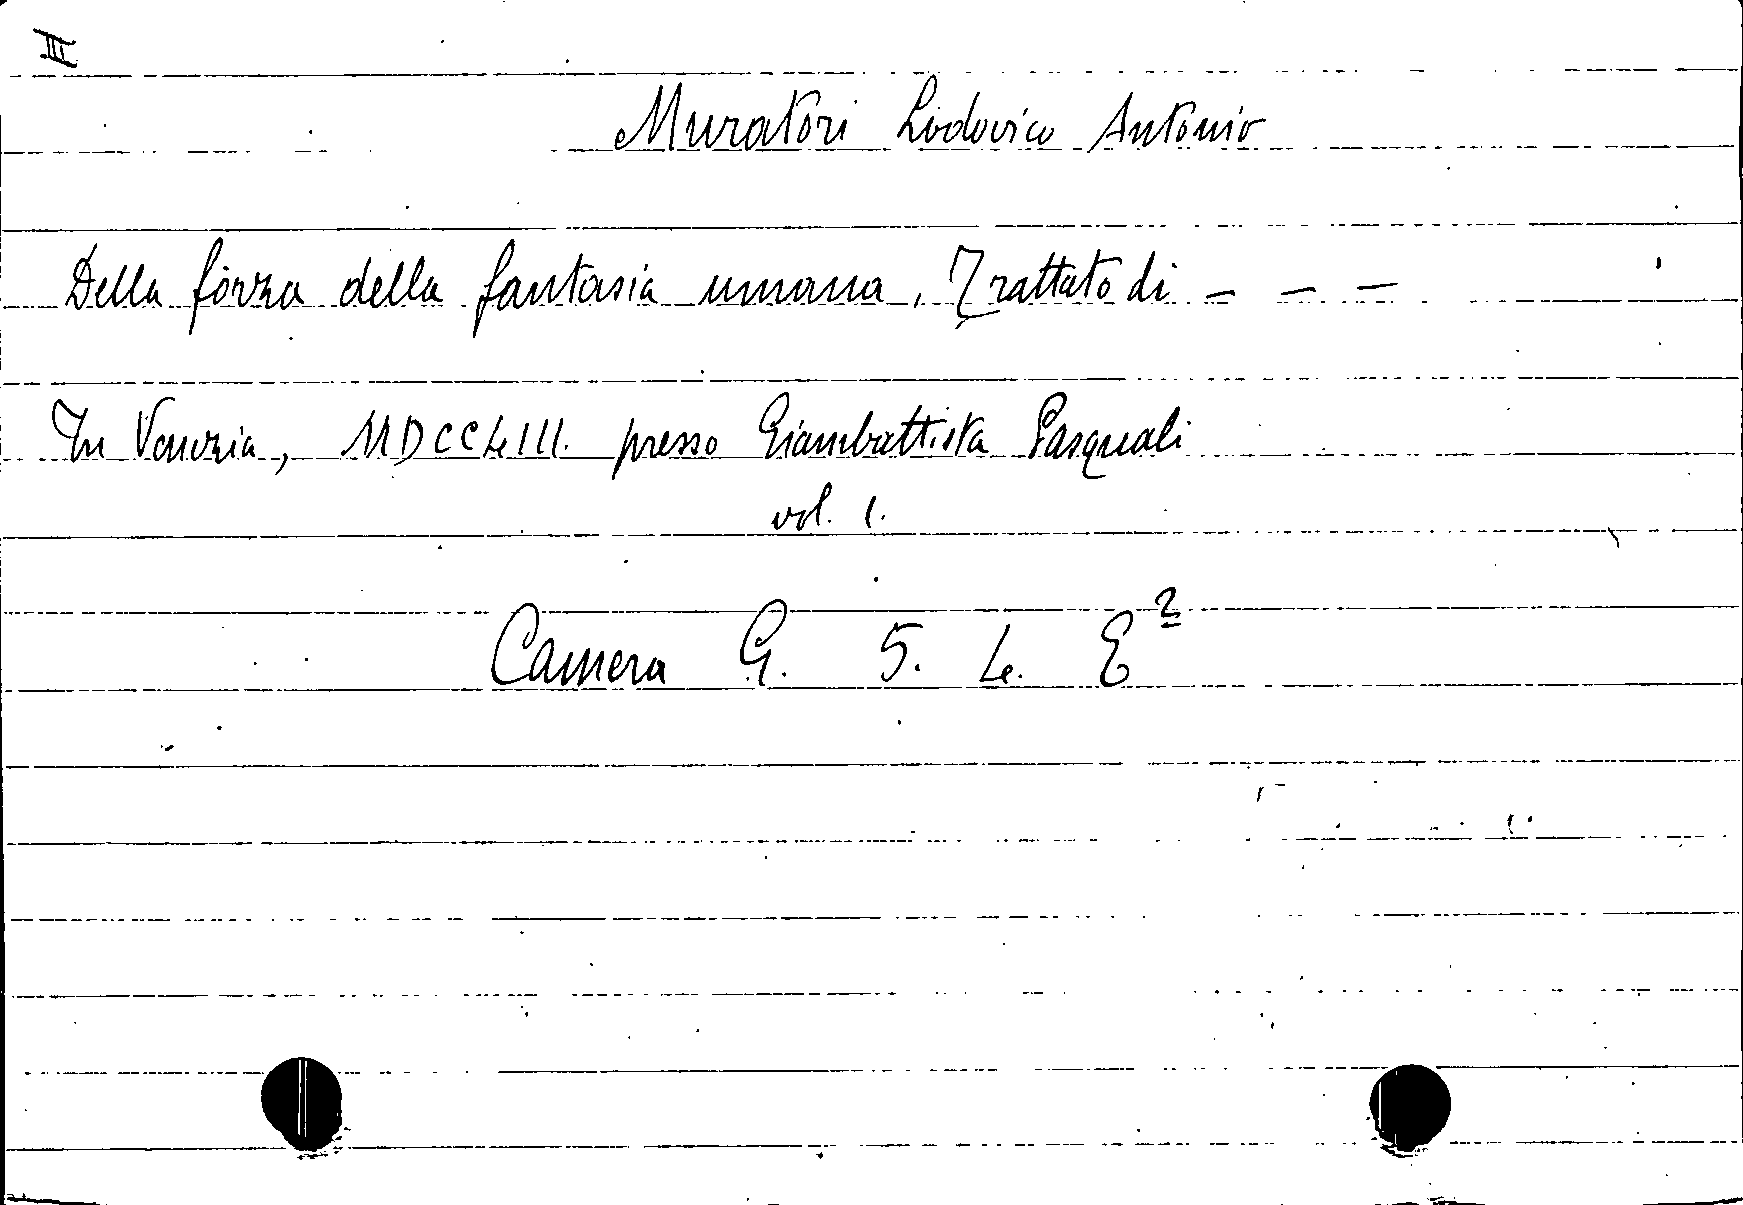 III
Muratori Lodovico Antonio
Della forza della fantasia umana, Trattato di - - -
In Venezia, MDCCLIII. presso Giambattista Pasquali
vol. 1.
Camera G. 5. L. E²